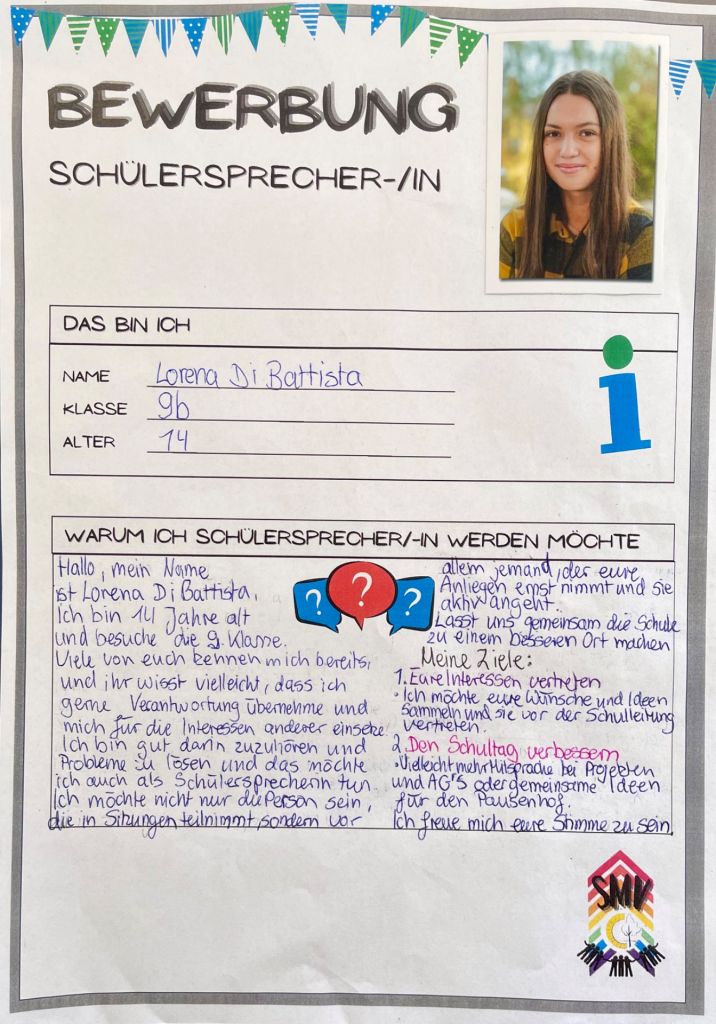 BEWERBUNG
SCHÜLERSPRECHER-/IN
DAS BIN ICH
NAME Lorena Di Battista
KLASSE 9b
ALTER 14
i
WARUM ICH SCHÜLERSPRECHER/-IN WERDEN MÖCHTE
Hallo, mein Name
ist Lorena Di Battista.
Ich bin 14 Jahre alt
und besuche die 9. Klasse.
Viele von euch kennen mich bereits,
und ihr wisst vielleicht, dass ich
gerne Verantwortung übernehme und
mich für die Interessen anderer einsetze.
Ich bin gut darin zuzuhören und
Probleme zu lösen und das möchte
ich auch als Schülersprecherin tun.
Ich möchte nicht nur die Person sein,
die in Sitzungen teilnimmt, sondern vor
? ? ?
allem jemand, der eure
Anliegen ernst nimmt und sie
aktiv angeht.
Lasst uns gemeinsam die Schule
zu einem besseren Ort machen
Meine Ziele:
1. Eure Interessen vertreten
• Ich möchte eure Wünsche und Ideen
sammeln und sie vor der Schulleitung
vertreten.
2. Den Schultag verbessern
• Vielleicht mehr Mitsprache bei Projekten
und AG'S oder gemeinsame Ideen
für den Pausenhof.
Ich freue mich eure Stimme zu sein
SMV